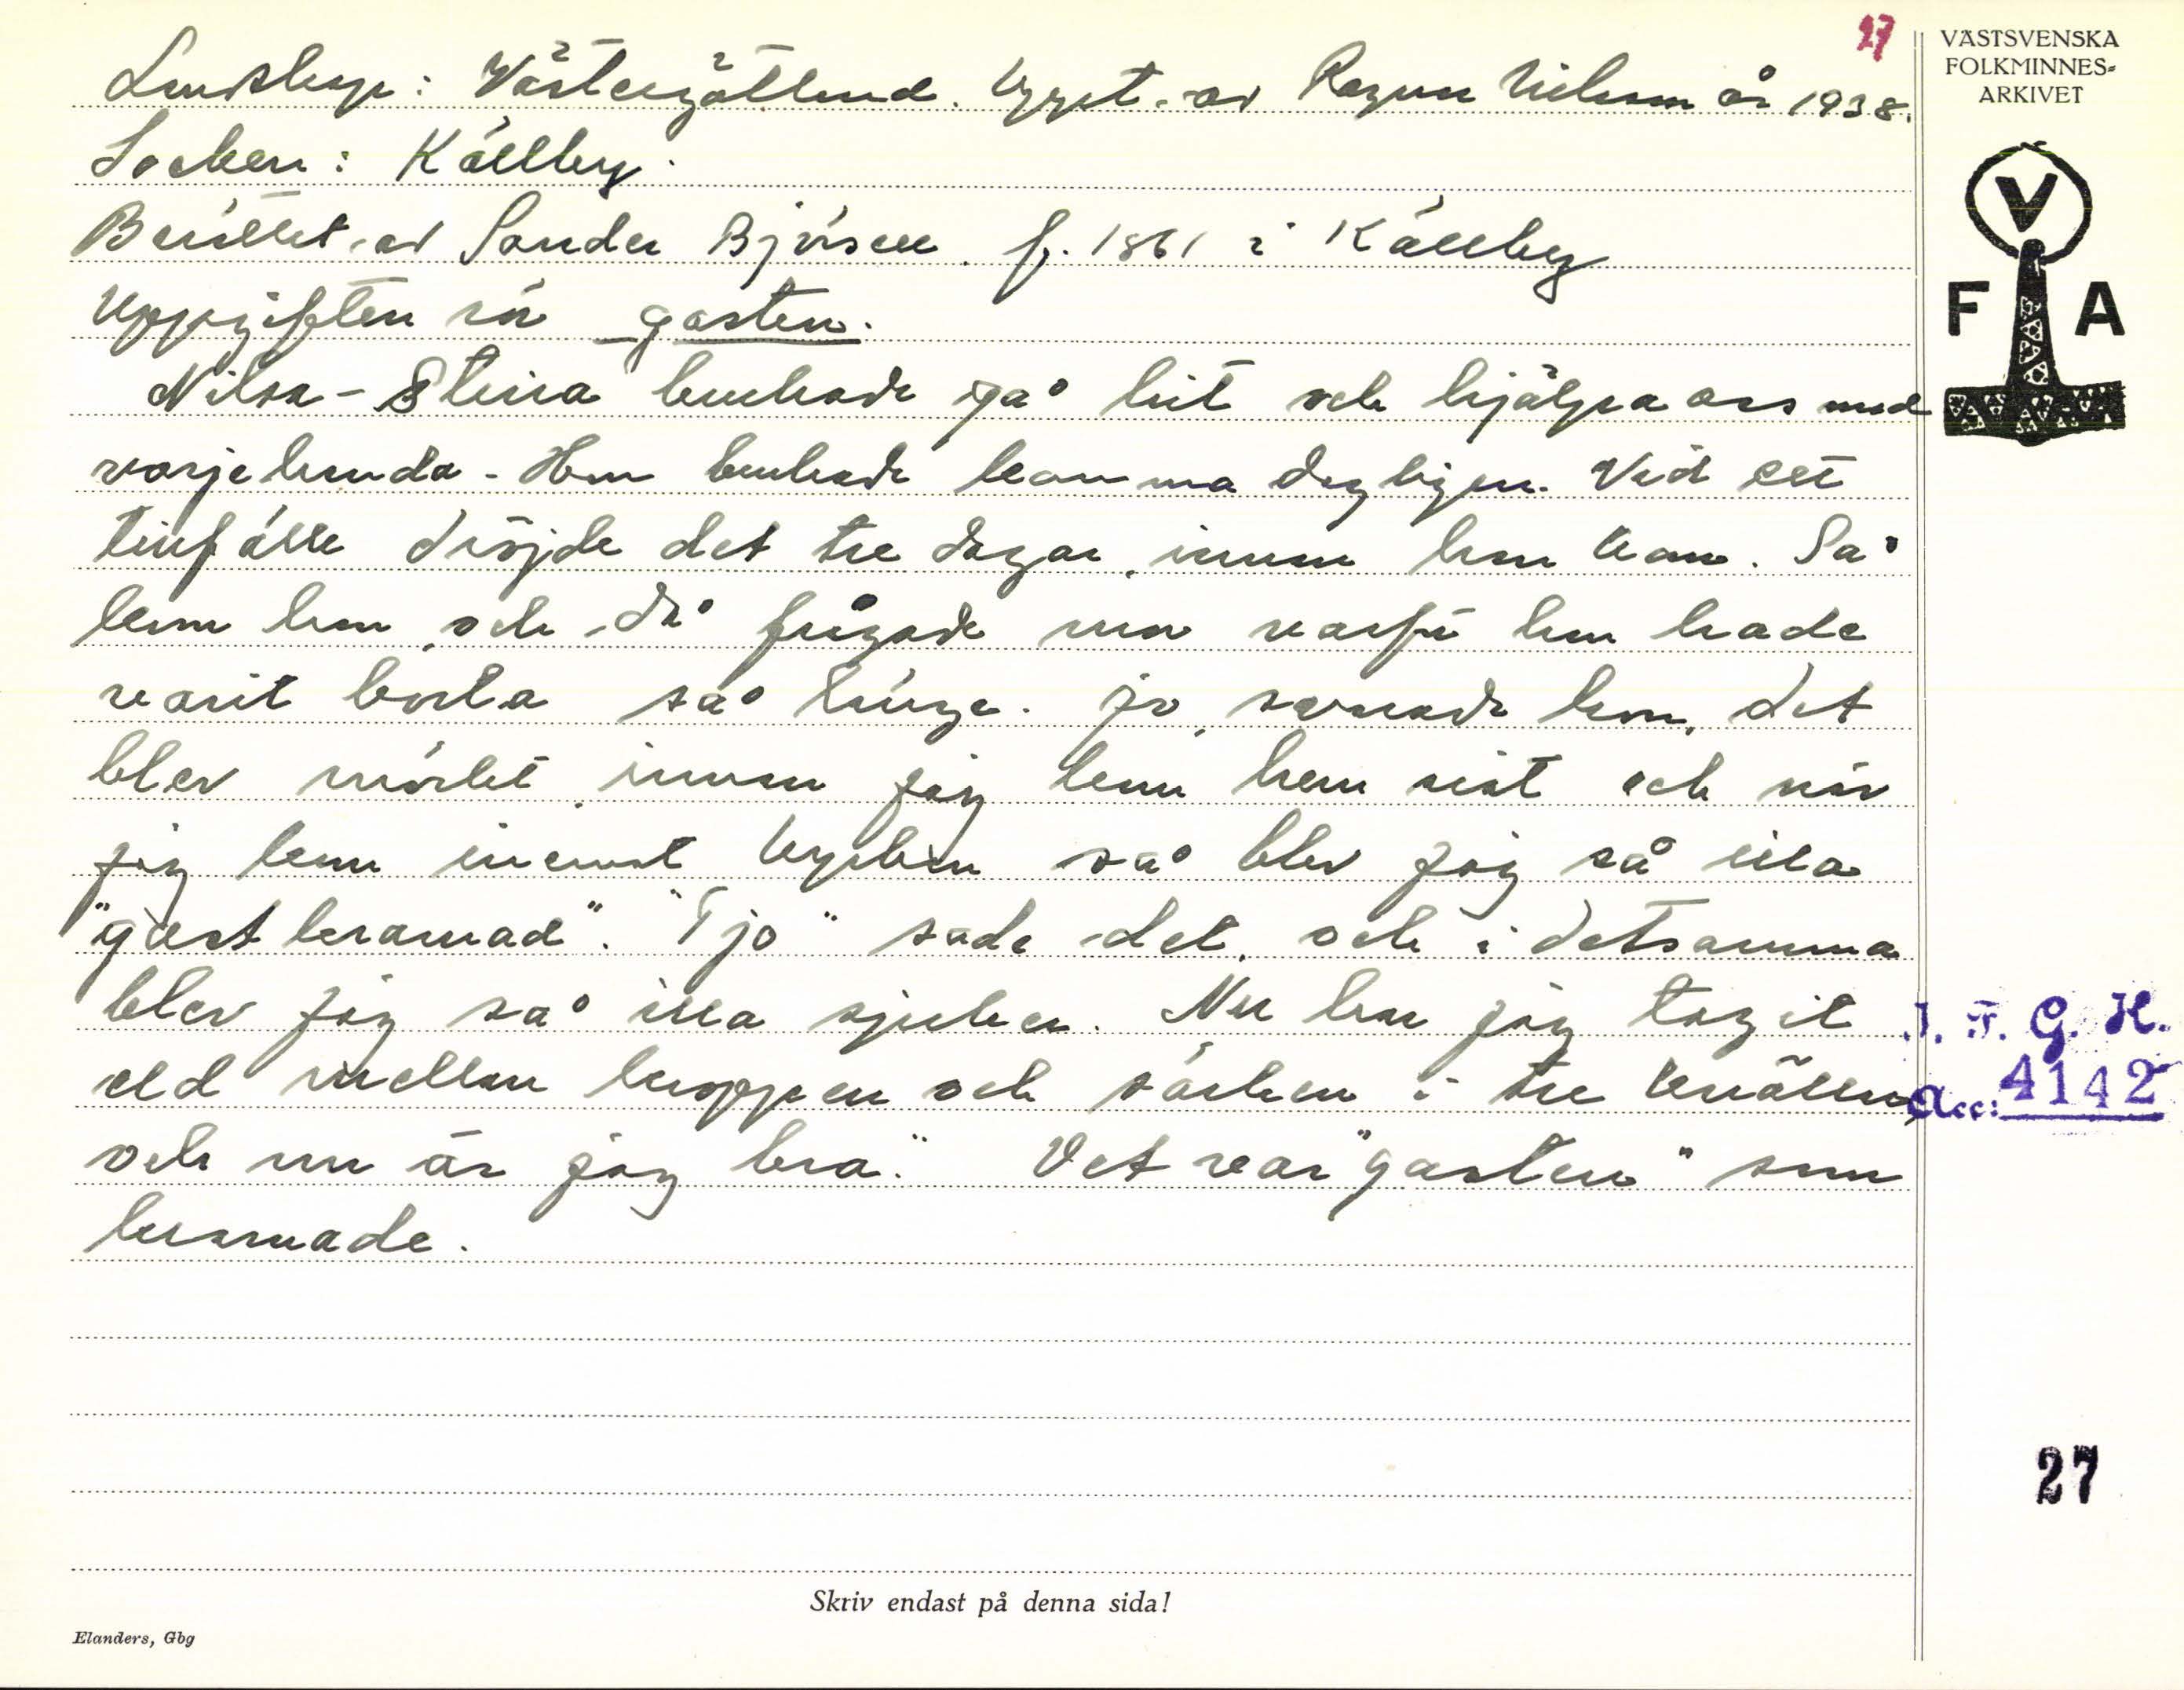 27
Landskap: Västergötland. Uppt. av Ragnar Nilsson år 1938.
Socken: Källby.
Berättat av Sander Björsell. f. 1861 i Källby
Uppgiften rör gasten.
Nilsa-Stina brukade gå hit och hjälpa oss med
varjehanda. Hon brukade komma dagligen. Vid ett
tillfälle dröjde det tre dagar, innan hon kom. Så
kom hon, och då frågade mor varför hon hade
varit borta så länge. Jo, svarade hon, det
blev mörkt, innan jag kom hem sist och när
jag kom inemot lyckan så blev jag så illa
"gastkramad". "Tjo" sade det, och i detsamma
blev jag så illa sjuker. Nu har jag tagit
eld mellan kroppen och särken i tre kvällar,
och nu är jag bra." Det var "gasten" som
kramade.
VÄSTSVENSKA
FOLKMINNES=
ARKIVET
V
F A
I. F. G. H.
Acc: 4142
27
Skriv endast på denna sida!
Elanders, Gbg